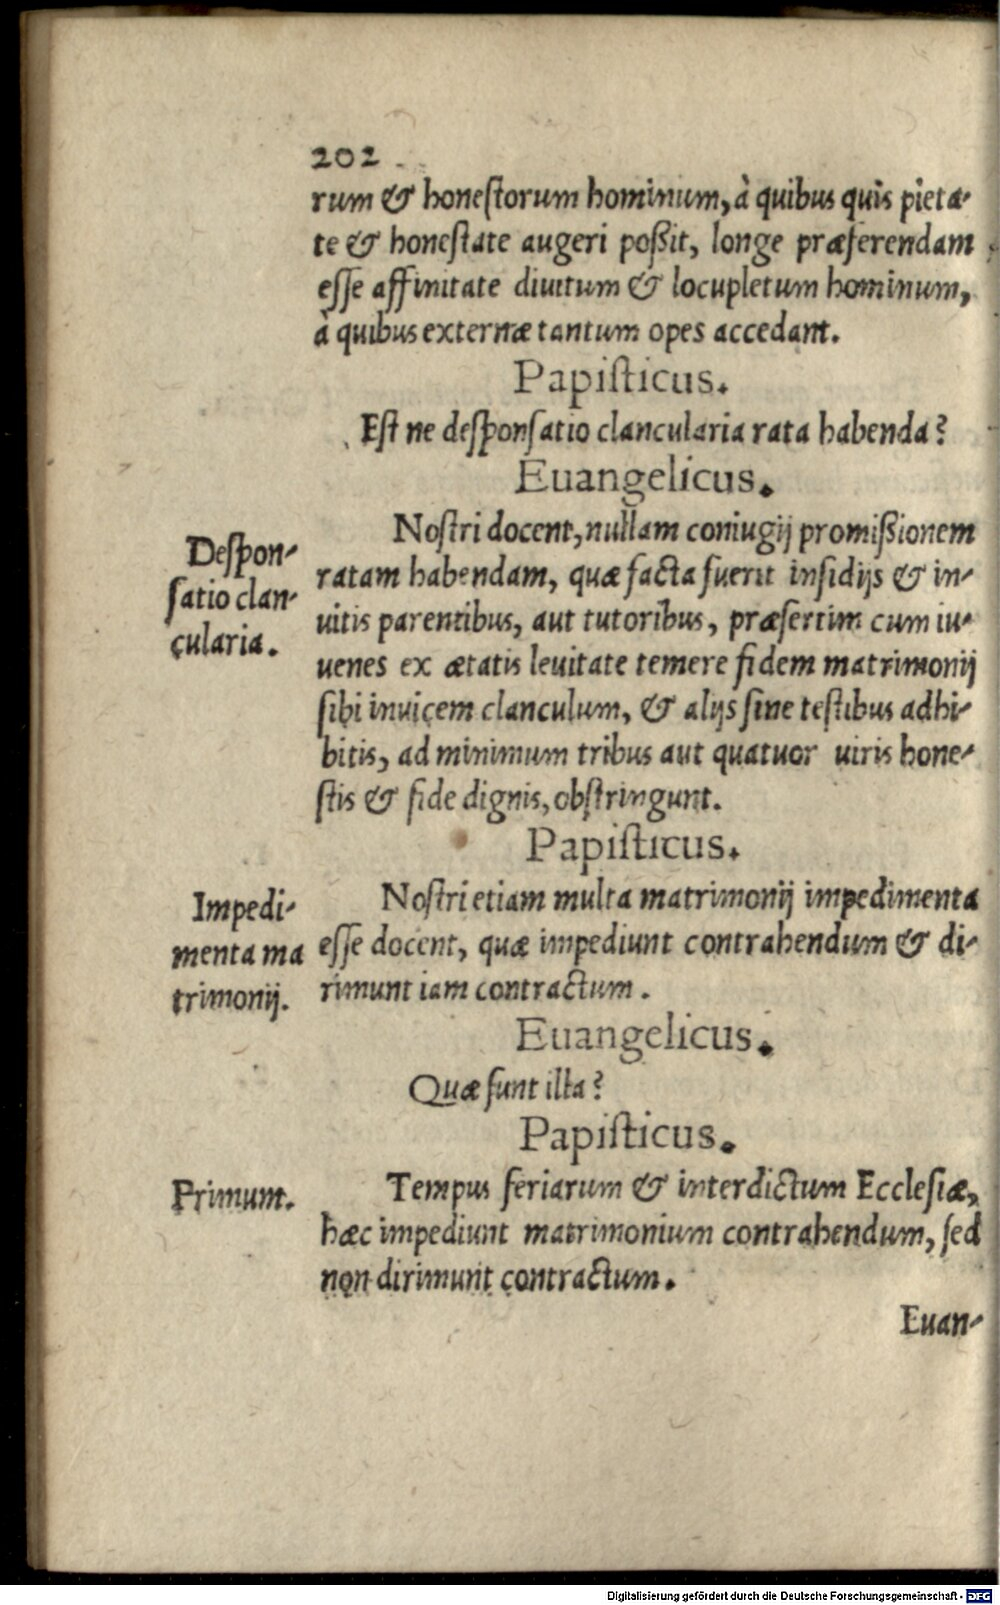 202
rum & honeſtorum hominum, à quibus quis pieta-
te & honeſtate augeri poßit, longe præferendam
eſſe affinitate diuitum & locupletum hominum,
à quibus externæ tantum opes accedant.
Papiſticus.
Eſt ne deſponſatio clancularia rata habenda?
Euangelicus.
Noſtri docent, nullam coniugij promißionem
ratam habendam, quæ facta fuerit inſidijs & in-
uitis parentibus, aut tutoribus, præſertim cum iu-
uenes ex ætatis leuitate temere fidem matrimonij
ſibi inuicem clanculum, & alijs ſine teſtibus adhi-
bitis, ad minimum tribus aut quatuor uiris hone-
ſtis & fide dignis, obſtringunt.
Deſpon-
ſatio clan-
cularia.
Papiſticus.
Noſtri etiam multa matrimonij impedimenta
eſſe docent, quæ impediunt contrahendum & di-
rimunt iam contractum.
Impedi-
menta ma
trimonij.
Euangelicus.
Quæ ſunt illa?
Papiſticus.
Tempus feriarum & interdictum Eccleſiæ,
hæc impediunt matrimonium contrahendum, ſed
non dirimunt contractum.
Primum.
Euan-
Digitalisierung gefördert durch die Deutsche Forschungsgemeinschaft - DFG